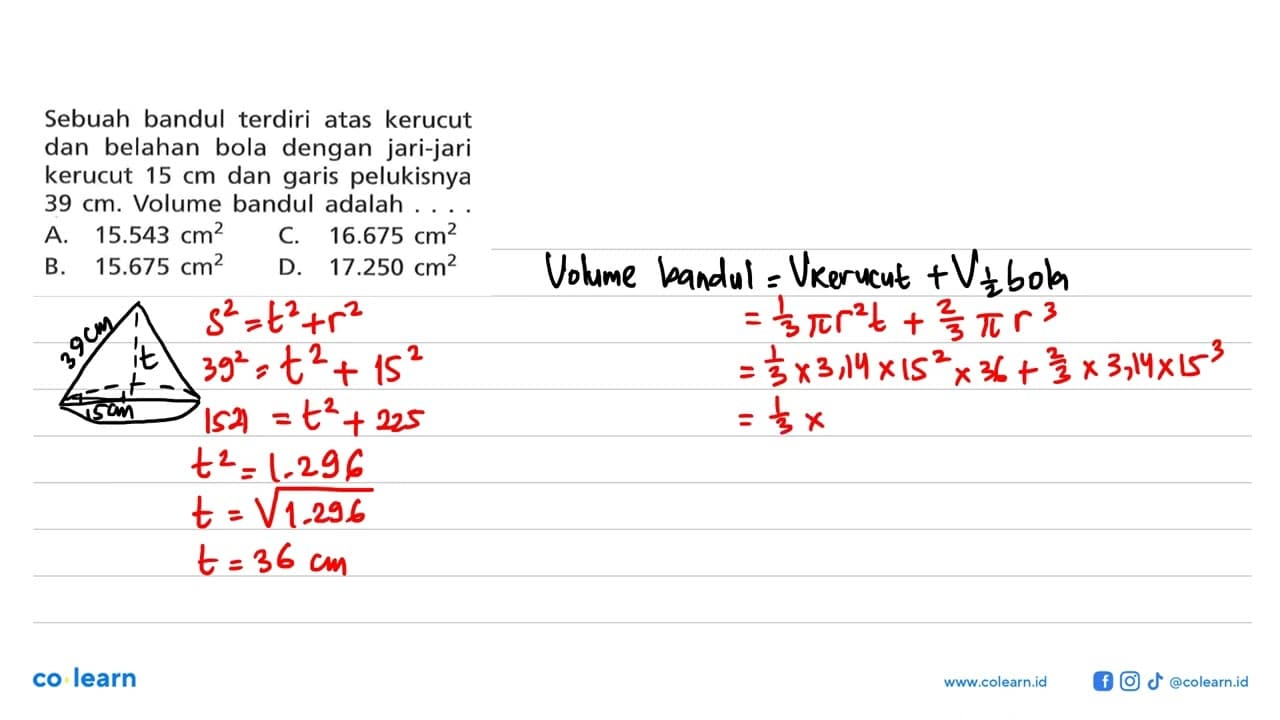 Sebuah bandul terdiri atas kerucut
dan belahan bola dengan jari-jari
kerucut 15 cm dan garis pelukisnya
39 cm. Volume bandul adalah . . . .
A. 15.543 cm² C. 16.675 cm²
B. 15.675 cm² D. 17.250 cm²
39 cm
t
15 cm
s² = t² + r²
39² = t² + 15²
1521 = t² + 225
t² = 1.296
t = √1.296
t = 36 cm
Volume bandul = Vkerucut + V½ bola
= 1/3 πr²t + 2/3 πr³
= 1/3 × 3,14 × 15² × 36 + 2/3 × 3,14 × 15³
= 1/3 ×
co learn
www.colearn.id
@colearn.id